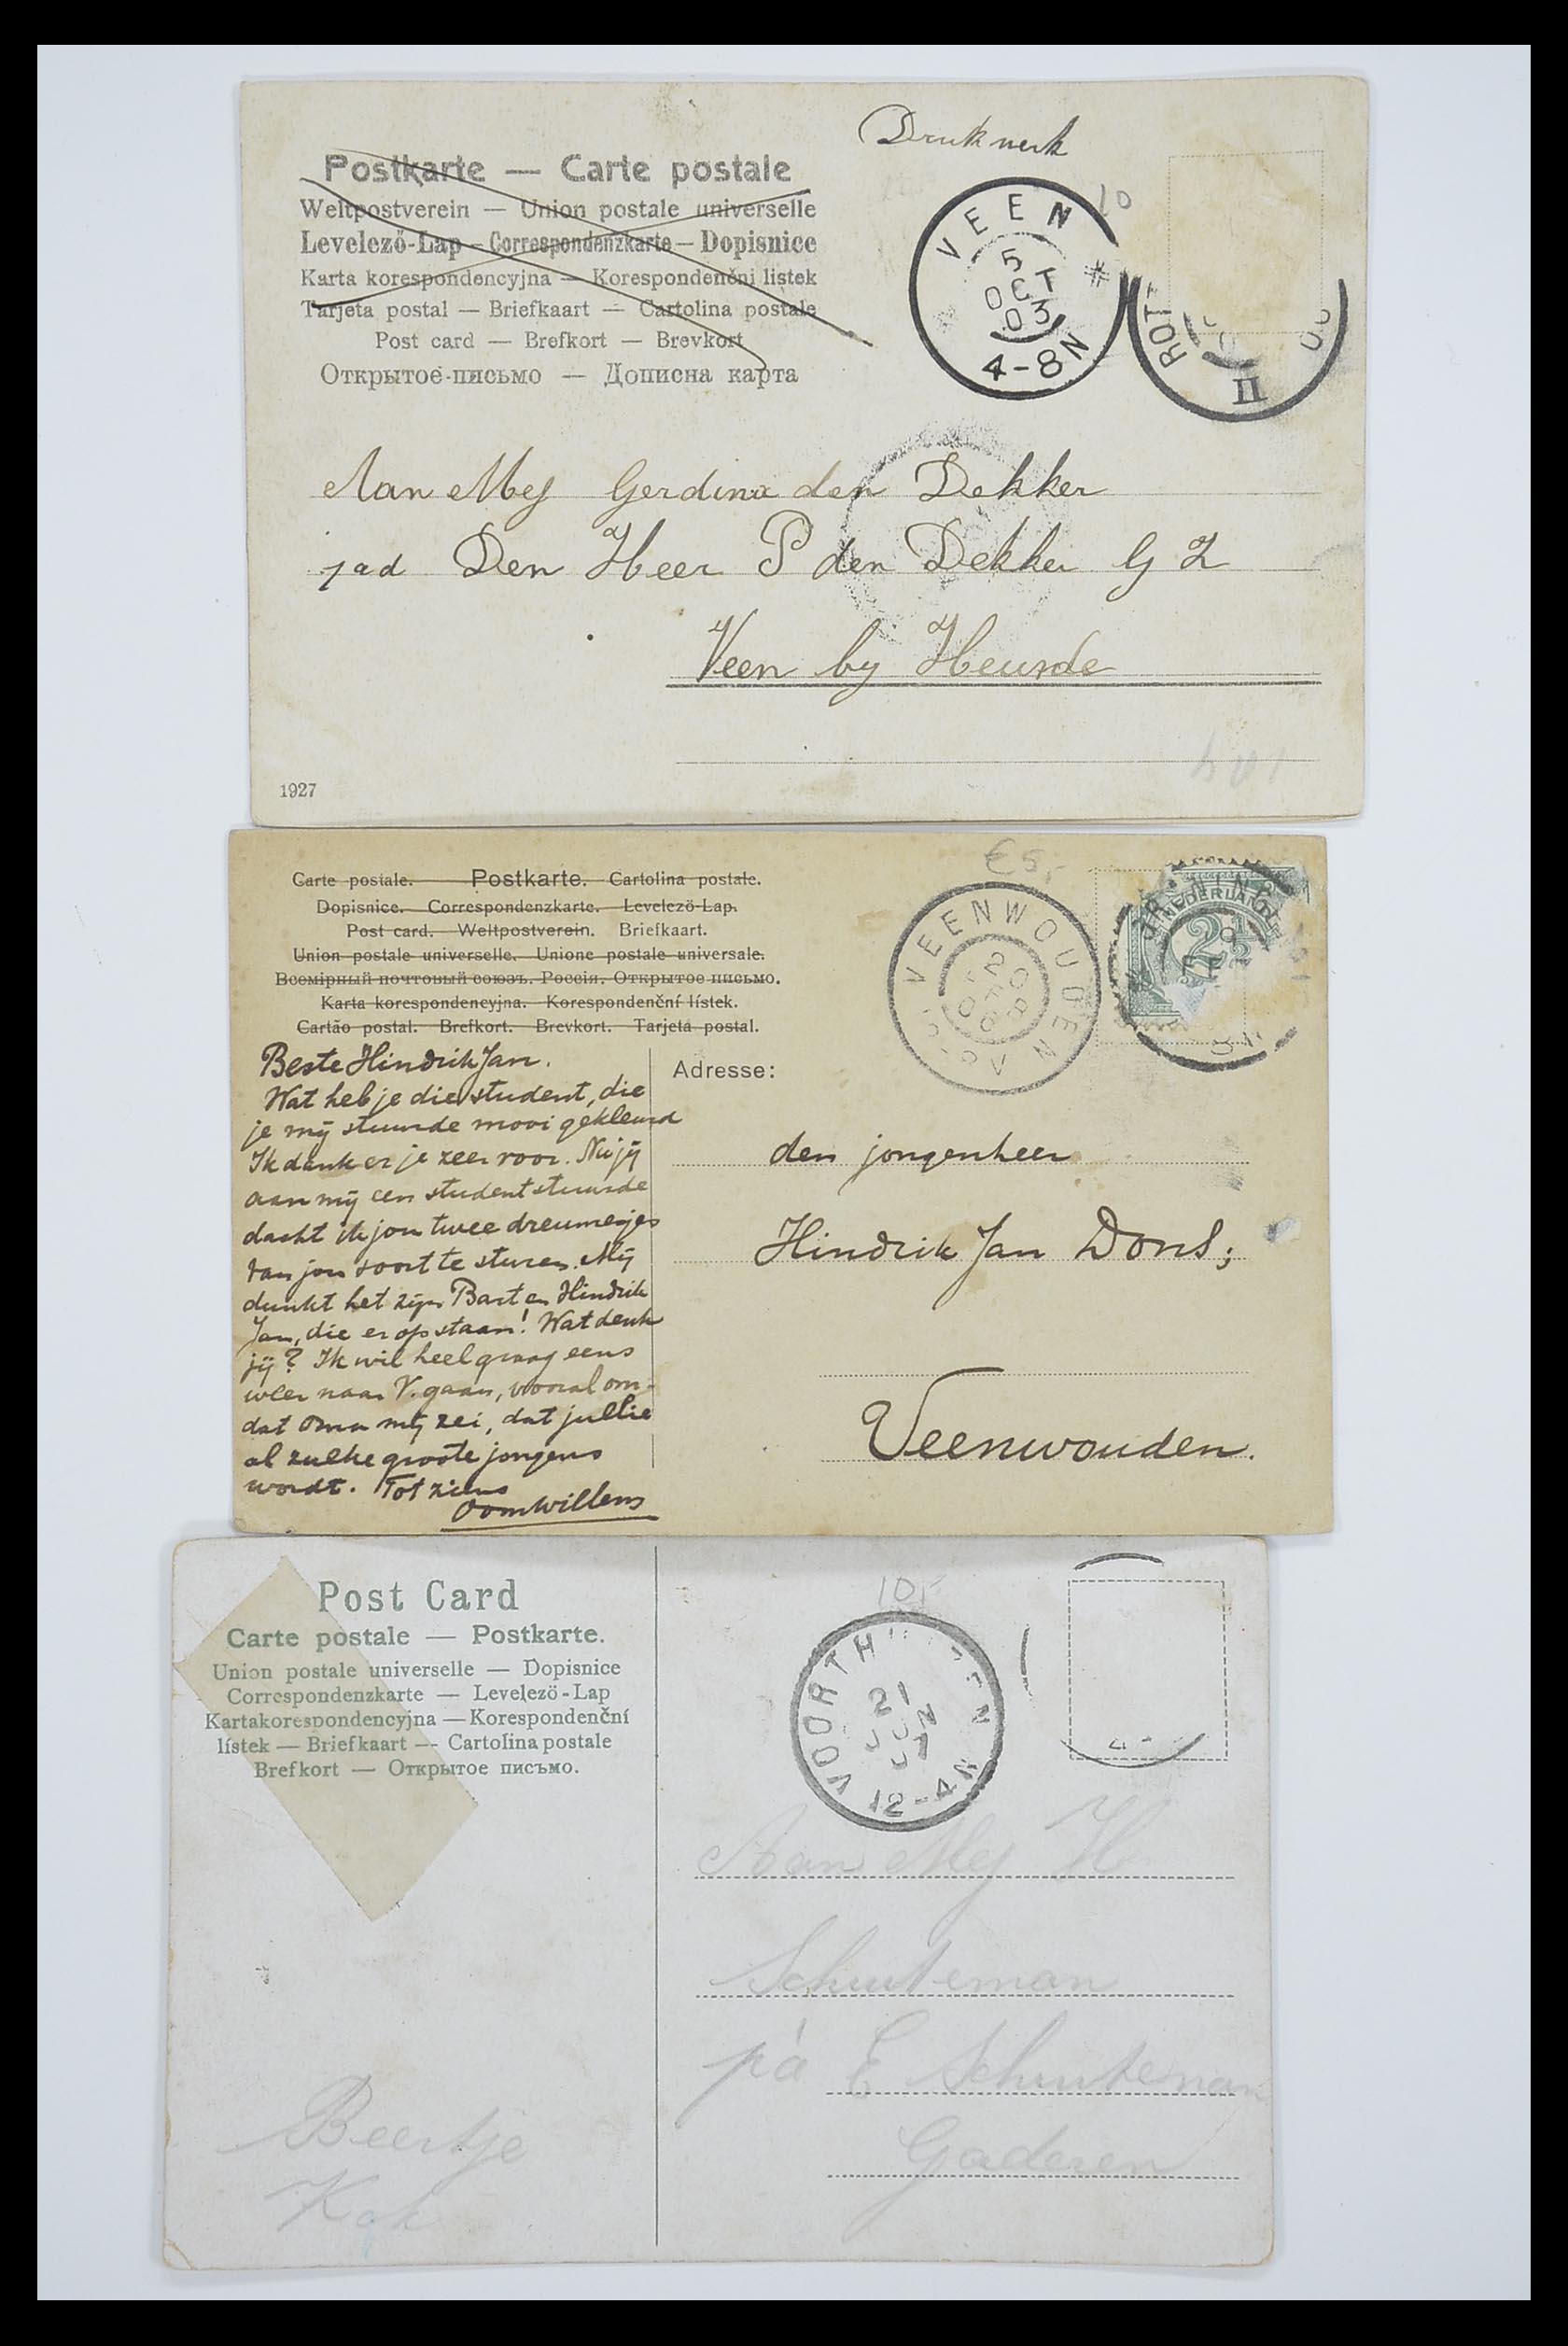 Drukwerk
Postkarte — Carte postale
Weltpostverein — Union postale universelle
Levelező-Lap — Correspondenzkarte — Dopisnice
Karta korespondencyjna — Korespondenční lístek
Tarjeta postal — Briefkaart — Cartolina postale
Post card — Brefkort — Brevkort
Открытое письмо — Дописна карта
10
VEEN
5
OCT
03
4-8N
ROT
II
Aan Mej Gerdina den Dekker
Den Heer P den Dekker G Z
Veen by Heusde
1927
€5,-
Carte postale. Postkarte. Cartolina postale.
Dopisnice. Correspondenzkarte. Levelező-Lap.
Post card. Weltpostverein. Briefkaart.
Union postale universelle. Unione postale universale.
Всемірный почтовый союзъ. Россія. Открытое письмо.
Karta korespondencyjna. Korespondenční lístek.
Cartão postal. Brefkort. Brevkort. Tarjeta postal.
VEENWOUDEN
NEDERLAND
2½
Beste Hindrik Jan.
Wat heb je die student, die
je mij stuurde mooi gekleurd
Ik dank er je zeer voor. Nu jij
aan mij een student stuurde
dacht ik jou twee dreumesjes
van jou soort te sturen. Mij
dunkt het zijn Bart en Hindrik
Jan, die er op staan! Wat denk
jij? Ik wil heel graag eens
weer naar V. gaan, vooral om-
dat Oma mij zei, dat jullie
al zulke groote jongens
wordt. Tot ziens
Oom Willem
Adresse:
den jongenheer
Hindrik Jan Dons;
Veenwouden.
Post Card
Carte postale — Postkarte.
Union postale universelle — Dopisnice
Correspondenzkarte — Levelező-Lap
Kartakorespondencyjna — Korespondenční
lístek — Briefkaart — Cartolina postale
Brefkort — Открытое письмо.
10,-
VOORTH
21
JUN
07
12-4N
Aan Mej H
Schuteman
pa E Schuteman
Gaderen
Beertje
Kok